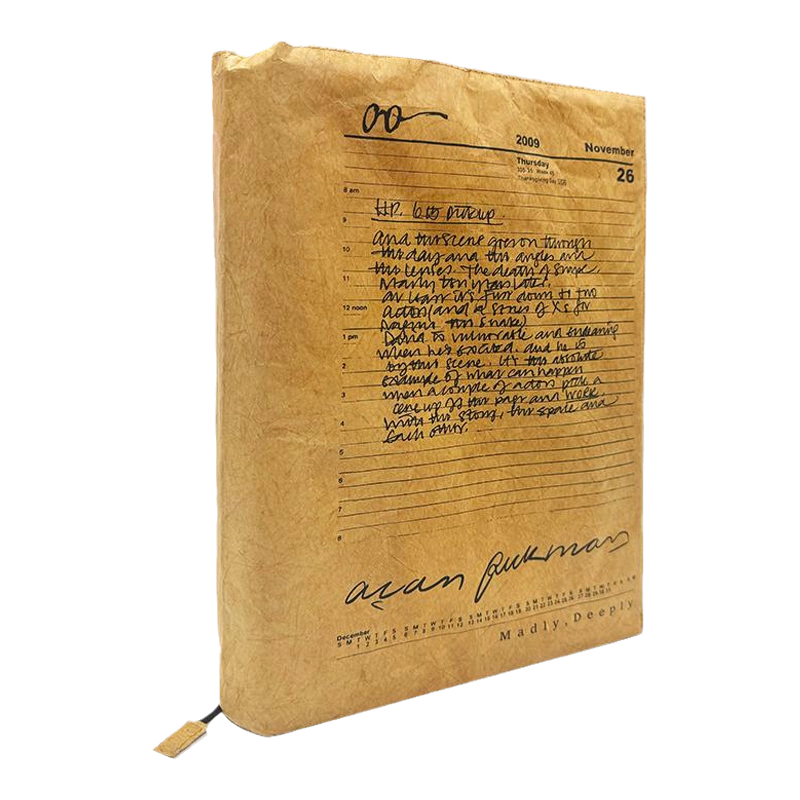 2009 November
Thursday 26
Thanksgiving Day (US)
8 am
HP. 6 pickup.
9
and this scene goes on through
10
the day and the angles and
the lenses. The death of Snape.
11
Nearly ten years later.
at least it's just down to two
12 noon
actors (and a series of Xs for
Nagini the snake)
1 pm
David is vulnerable and endearing
when he's excited. and he is
2
by this scene. It's the absolute
example of what can happen
3
when a couple of actors pick a
scene up off the page and work
4
with the story, the space and
each other.
5
6
7
8
alan rickman
December
S M T W T F S S M T W T F S S M T W T F S S M T W T F S S M T W T F S
1 2 3 4 5 6 7 8 9 10 11 12 13 14 15 16 17 18 19 20 21 22 23 24 25 26 27 28 29 30 31
Madly, Deeply